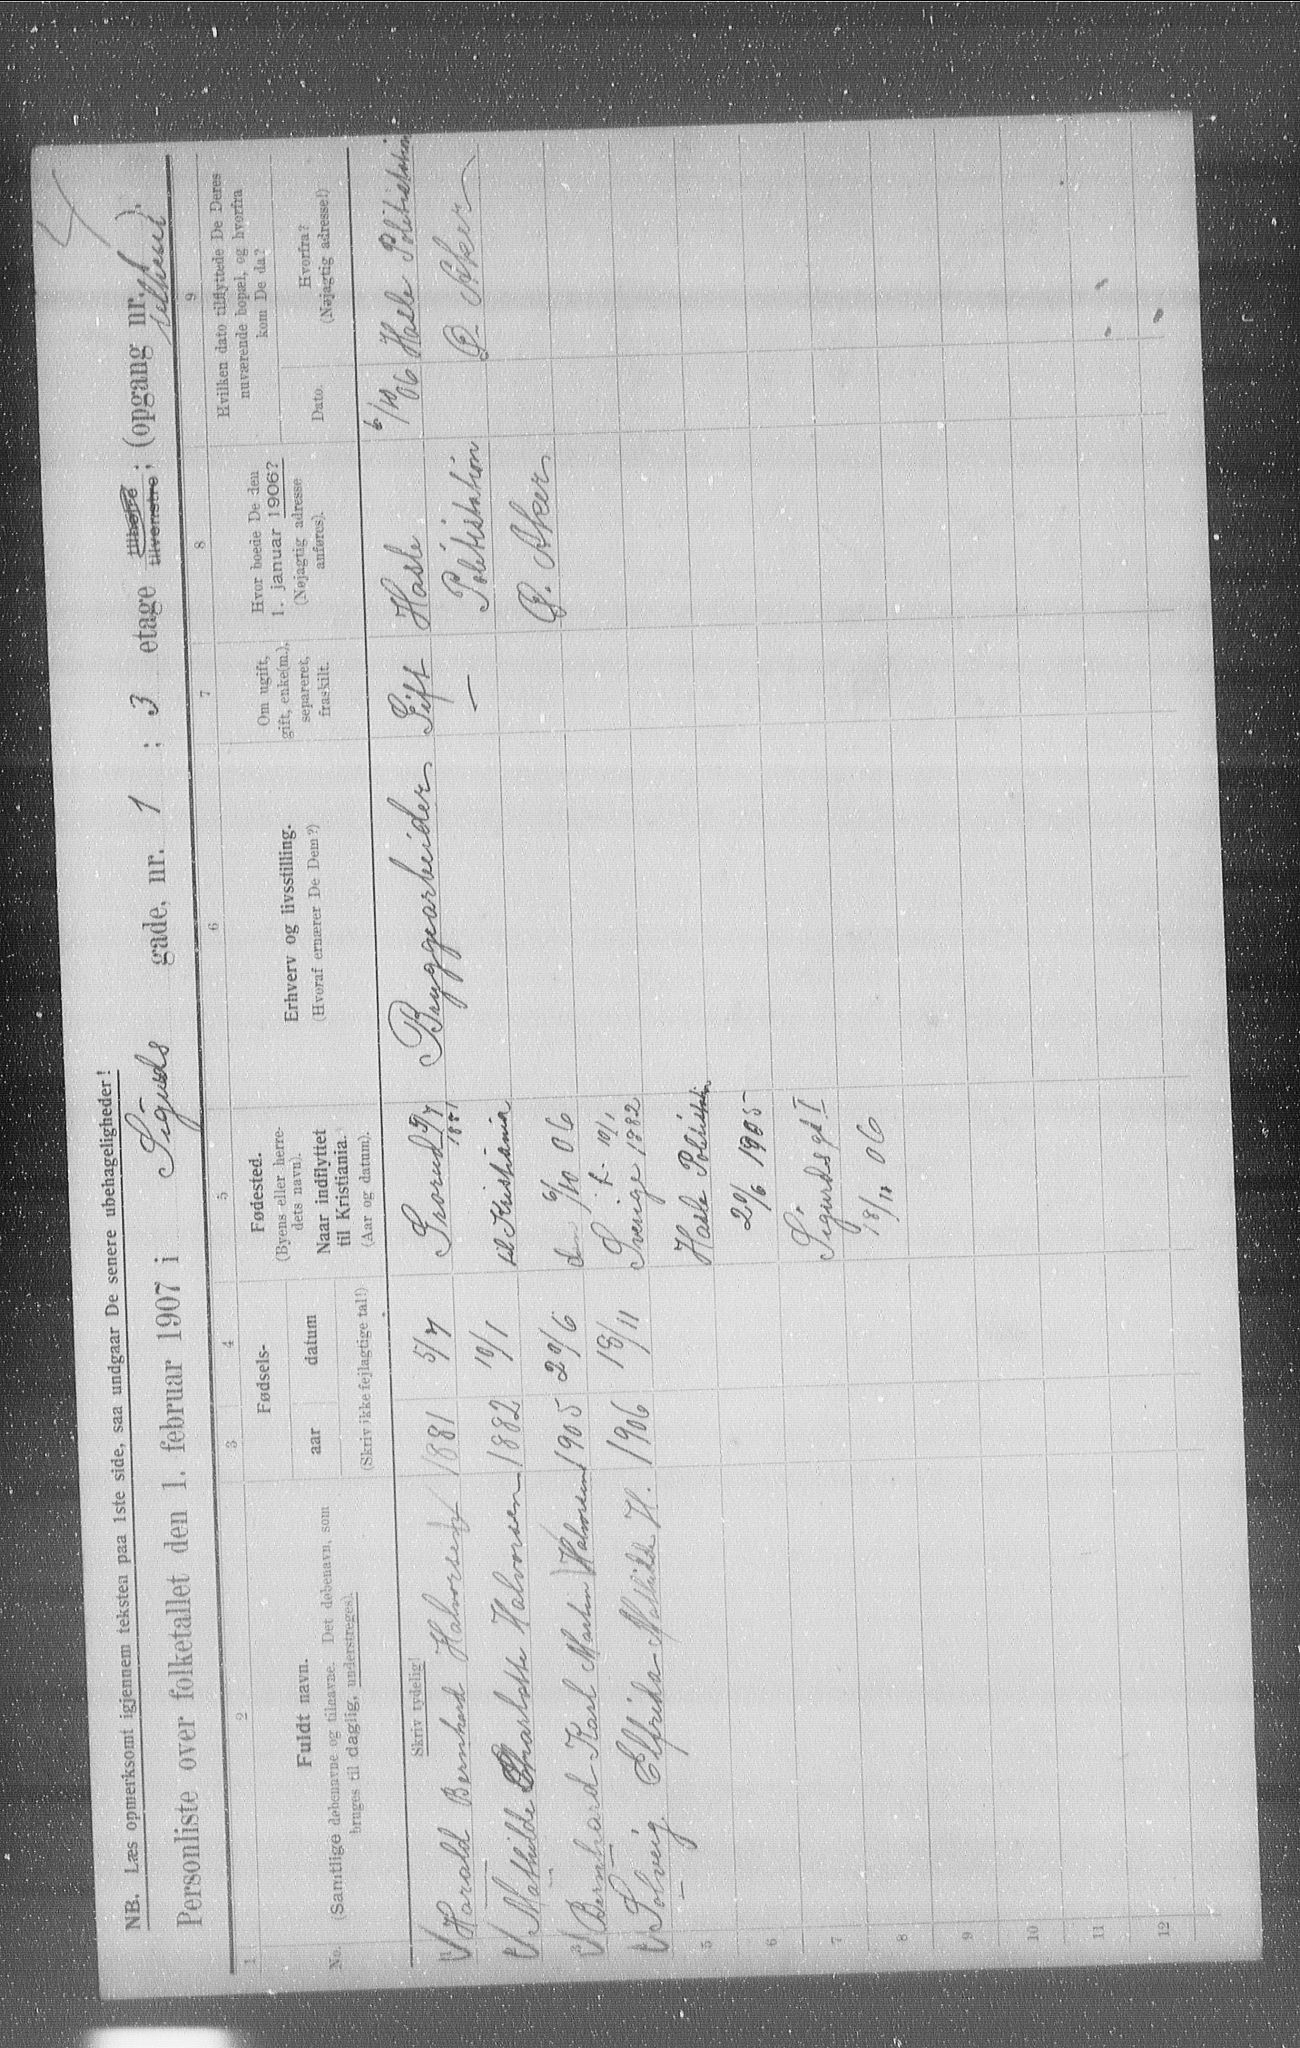 NB. Læs opmerksomt igjennem teksten paa 1ste side, saa undgaar De senere ubehageligheder!
Personliste over folketallet den 1. februar 1907 i Sigurds gade, nr. 1 ; 3 etage tilhøire tilvenstre; (opgang nr. ).
1 2 3 4 5 6 7 8 9
No.
Fuldt navn.
(Samtlige døbenavne og tilnavne. Det døbenavn, som
bruges til daglig, understreges).
Fødsels-
aar datum
(Skriv ikke fejlagtige tal!)
Fødested.
(Byens eller herre-
dets navn).
Naar indflyttet
til Kristiania.
(Aar og datum).
Erhverv og livsstilling.
(Hvoraf ernærer De Dem?)
Om ugift,
gift, enke(m.),
separeret,
fraskilt.
Hvor boede De den
1. januar 1906?
(Nøjagtig adresse
anføres).
Hvilken dato tilflyttede De Deres
nuværende bopæl, og hvorfra
kom De da?
Dato.
Hvorfra?
(Nøjagtig adresse!)
Skriv tydelig!
Harald Bernhard Halvorsen 1881 5/7 Grorud 5/7 1881 Bryggearbeider Gift Hasle 6/10 06 Hasle Politistation
Mathilde Charlotte Halvorsen 1882 10/1 til Kristiania — Politistation Ø. Aker
Bernhard Karl Martin Halvorsen 1905 29/6 den 6/10 06 Ø. Aker
Solveig Elfrida Mathilde H. 1906 18/11 Sverige f. 10/1 1882
5 Hasle Politistation
6 29/6 1905
7 Sigurds gt I
8 18/11 06
9
10
11
12